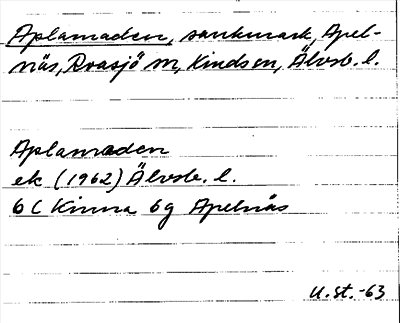 Aplamaden, sankmark, Apel-
näs, Roasjö sn, Kinds hd, Älvsb. l.
Aplamaden
ek (1962) Älvsb. l.
6 C Kinna 6g Apelnäs
U. st. -63